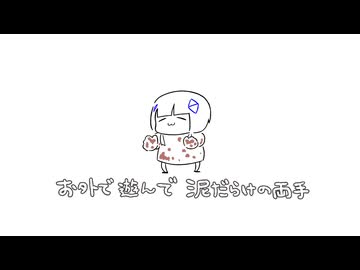 お外で遊んで 泥だらけの両手